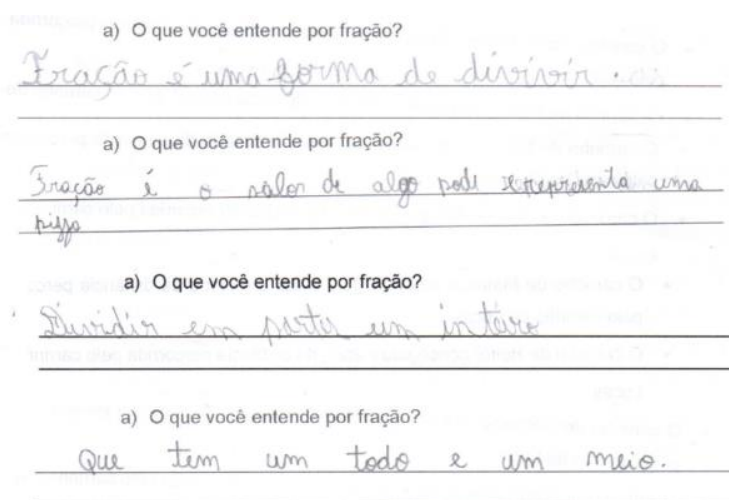 a) O que você entende por fração?
Fração é uma forma de divivir.
a) O que você entende por fração?
Fração é o valor de algo pode representa uma
pizza
a) O que você entende por fração?
Dividir em partes um intero
a) O que você entende por fração?
Que tem um todo e um meio.